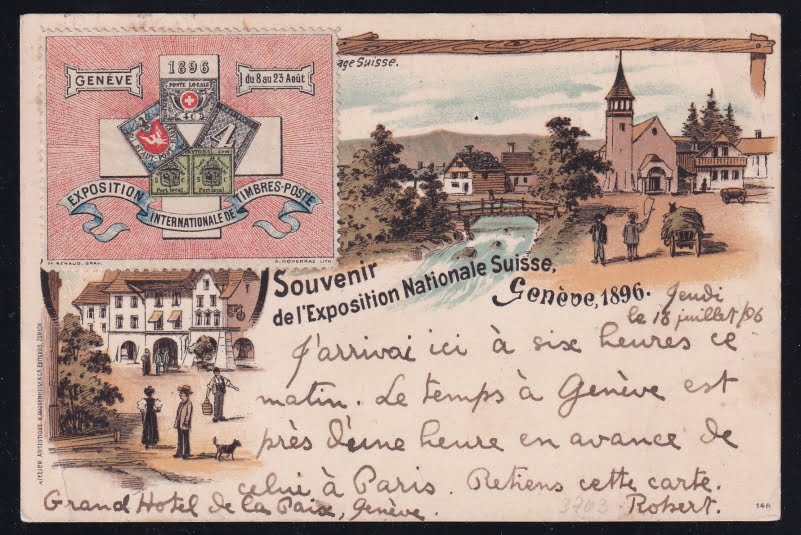 GENÈVE
1896
du 8 au 23 Août
POSTE LOCALE
4
Port local
Port local
EXPOSITION
INTERNATIONALE DE
TIMBRES-POSTE
A. NOVERRAZ LITH.
age Suisse.
Souvenir
de l'Exposition Nationale Suisse,
Genève, 1896.
Jeudi
le 16 juillet /96
J'arrivai ici à six heures ce
matin. Le temps à Genève est
près d'une heure en avance de
celui à Paris. Retiens cette carte.
Grand Hotel de la Paix, Genève.
3703
Robert.
146